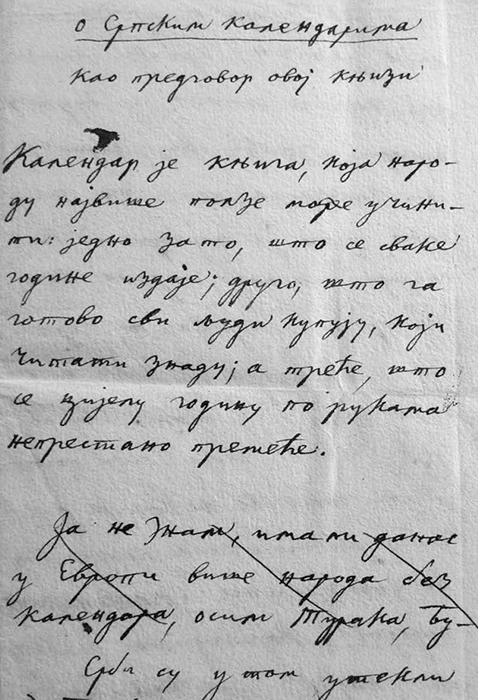 о Српским календарима
као предговор овој књизи
Календар је књига, која наро-
ду највише ползе може учини-
ти: једно зато, што се сваке
године издаје; друго, што га
готово сви људи купују, који
читати знаду; а треће, што
се цијелу годину по рукама
непрестано премеће.
Ја не знам, има ли данас
у Европи више народа без
календара, осим Турака,
Срби су у том утекли